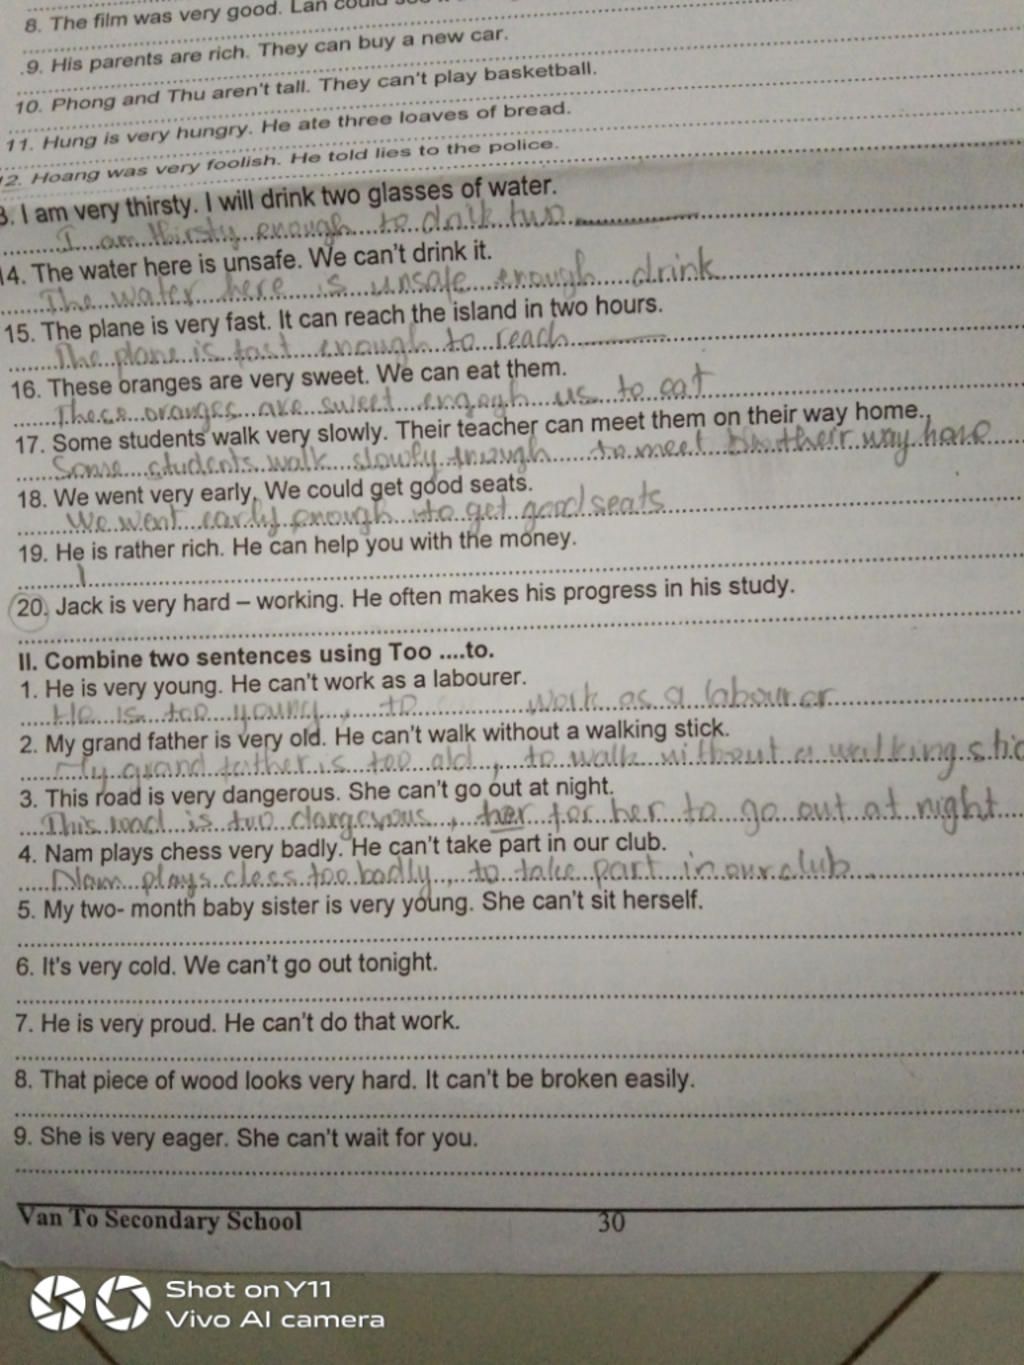 8. The film was very good. Lan could
.9. His parents are rich. They can buy a new car.
10. Phong and Thu aren't tall. They can't play basketball.
11. Hung is very hungry. He ate three loaves of bread.
12. Hoang was very foolish. He told lies to the police.
3. I am very thirsty. I will drink two glasses of water.
I am thirsty enough to
14. The water here is unsafe. We can't drink it.
The water here is unsafe enough drink
15. The plane is very fast. It can reach the island in two hours.
The plane is fast enough to reach
16. These oranges are very sweet. We can eat them.
These oranges are sweet engogh us to eat
17. Some students walk very slowly. Their teacher can meet them on their way home.,
Some students walk slowly to meet their way
18. We went very early, We could get good seats.
We went early enough to get good seats
19. He is rather rich. He can help you with the money.
20. Jack is very hard – working. He often makes his progress in his study.
II. Combine two sentences using Too ....to.
1. He is very young. He can't work as a labourer.
He is too young, to work as a labourer
2. My grand father is very old. He can't walk without a walking stick.
My grand father is too old, to walk without a walking stic
3. This road is very dangerous. She can't go out at night.
This road is too , her for her to go out at night
4. Nam plays chess very badly. He can't take part in our club.
Nam plays cless too badly, to take part in our club
5. My two- month baby sister is very young. She can't sit herself.
6. It's very cold. We can't go out tonight.
7. He is very proud. He can't do that work.
8. That piece of wood looks very hard. It can't be broken easily.
9. She is very eager. She can't wait for you.
Van To Secondary School 30
Shot on Y11
Vivo AI camera